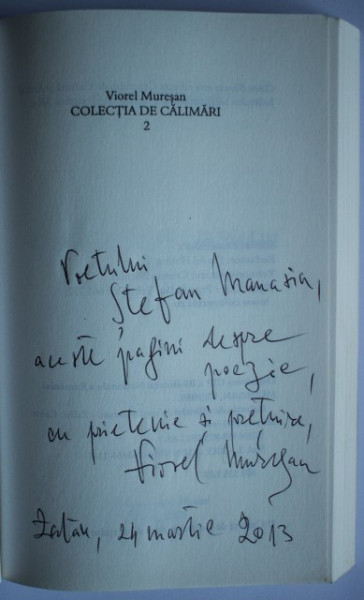 Viorel Mureșan
COLECȚIA DE CĂLIMĂRI
2
Poetului
Ștefan Manasia,
aceste pagini despre
poezie,
cu prietenie și prețuire,
Viorel Mureșan
24 martie 2013